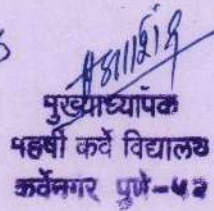 मुख्याध्यापक
महर्षी कर्वे विद्यालय
कर्वेनगर पुणे-५२